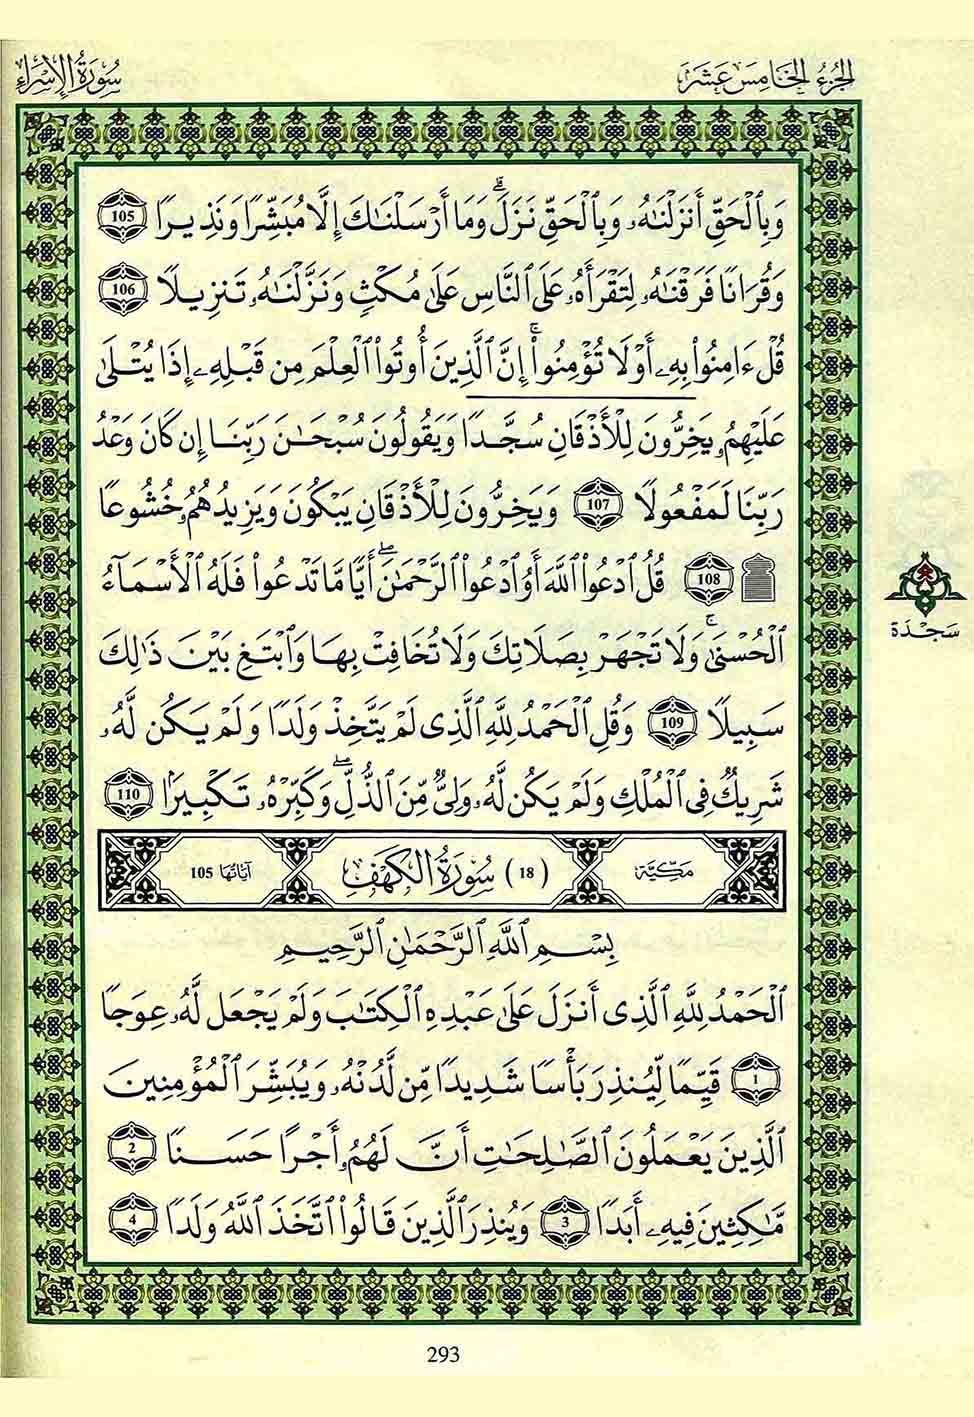 الجزء الخامس عشر
سورة الإسراء
وَبِالْحَقِّ أَنزَلْنَٰهُۥ وَبِالْحَقِّ نَزَلَۖ وَمَا أَرْسَلْنَٰكَ إِلَّا مُبَشِّرًا وَنَذِيرًا 105
وَقُرَانًا فَرَقْنَٰهُ لِتَقْرَأَهُۥ عَلَى النَّاسِ عَلَىٰ مُكْثٍ وَنَزَّلْنَٰهُ تَنزِيلًا 106
قُلْ ءَامِنُوا۟ بِهِۦ أَوْ لَا تُؤْمِنُوا۟ۚ إِنَّ الَّذِينَ أُوتُوا۟ الْعِلْمَ مِن قَبْلِهِۦ إِذَا يُتْلَىٰ
عَلَيْهِمُۥ يَخِرُّونَ لِلْأَذْقَانِ سُجَّدًا وَيَقُولُونَ سُبْحَٰنَ رَبِّنَا إِن كَانَ وَعْدُ
رَبِّنَا لَمَفْعُولًا 107 وَيَخِرُّونَ لِلْأَذْقَانِ يَبْكُونَ وَيَزِيدُهُمُۥ خُشُوعًا
108 قُلُ ادْعُوا۟ اللَّهَ أَوُ ادْعُوا۟ الرَّحْمَٰنَۖ أَيًّا مَّا تَدْعُوا۟ فَلَهُ الْأَسْمَآءُ
الْحُسْنَىٰۚ وَلَا تَجْهَرْ بِصَلَاتِكَ وَلَا تُخَافِتْ بِهَا وَابْتَغِ بَيْنَ ذَٰلِكَ
سَبِيلًا 109 وَقُلِ الْحَمْدُ لِلَّهِ الَّذِى لَمْ يَتَّخِذْ وَلَدًا وَلَمْ يَكُن لَّهُۥ
شَرِيكٌ فِى الْمُلْكِ وَلَمْ يَكُن لَّهُۥ وَلِىٌّ مِّنَ الذُّلِّۖ وَكَبِّرْهُۥ تَكْبِيرًا 110
مكية (18) سورة الكهف آياتها 105
بِسْمِ اللَّهِ الرَّحْمَٰنِ الرَّحِيمِ
الْحَمْدُ لِلَّهِ الَّذِى أَنزَلَ عَلَىٰ عَبْدِهِ الْكِتَٰبَ وَلَمْ يَجْعَل لَّهُۥ عِوَجًا
1 قَيِّمًا لِّيُنذِرَ بَأْسًا شَدِيدًا مِّن لَّدُنْهُ وَيُبَشِّرَ الْمُؤْمِنِينَ
الَّذِينَ يَعْمَلُونَ الصَّٰلِحَٰتِ أَنَّ لَهُمُۥ أَجْرًا حَسَنًا 2
مَّٰكِثِينَ فِيهِۦ أَبَدًا 3 وَيُنذِرَ الَّذِينَ قَالُوا۟ اتَّخَذَ اللَّهُ وَلَدًا 4
سَجْدَة
293